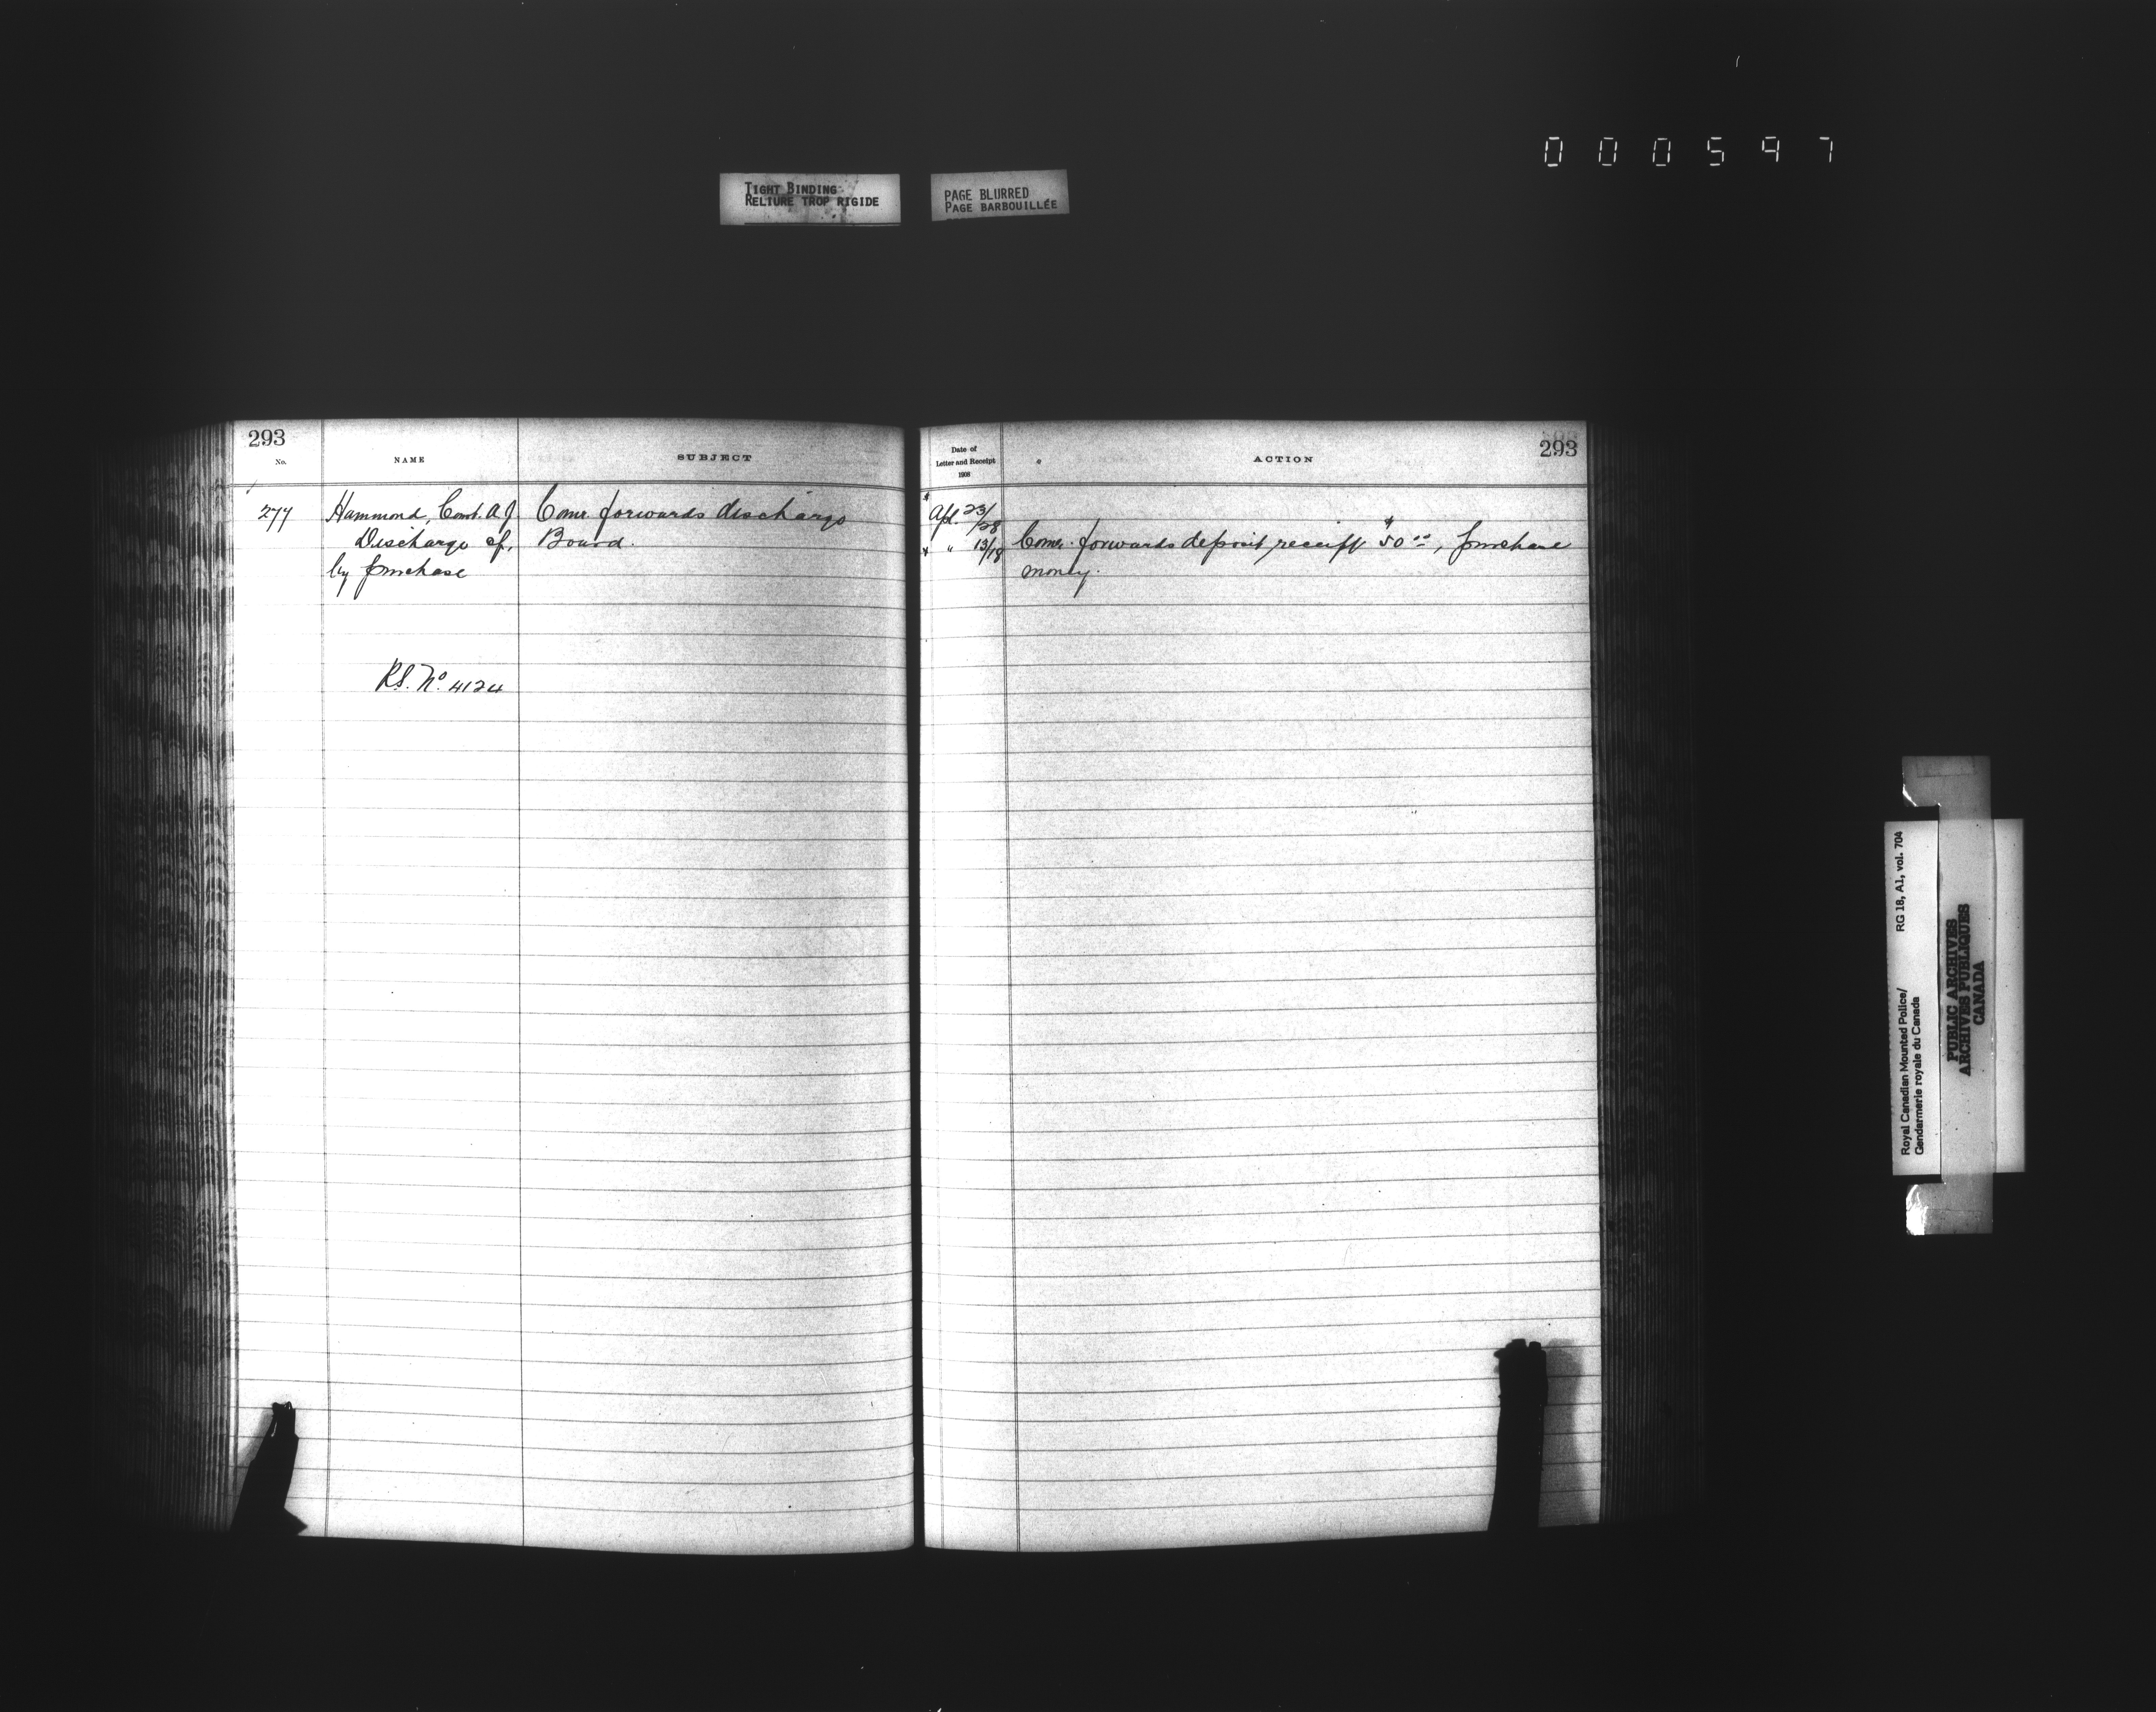 000597
TIGHT BINDING
RELIURE TROP RIGIDE
PAGE BLURRED
PAGE BARBOUILLÉE
293
No.
NAME
SUBJECT
277
Hammond, Const. A.J.
Discharge of,
by purchase
Comr. forwards discharge
Board.
R.S. No. 4124
Date of
Letter and Receipt
1908
ACTION
293
Apl. 23/28
" 13/18
Comr. forwards deposit receipt $50.00, purchase
money.
Royal Canadian Mounted Police/
Gendarmerie royale du Canada
RG 18, A1, vol. 704
PUBLIC ARCHIVES
ARCHIVES PUBLIQUES
CANADA